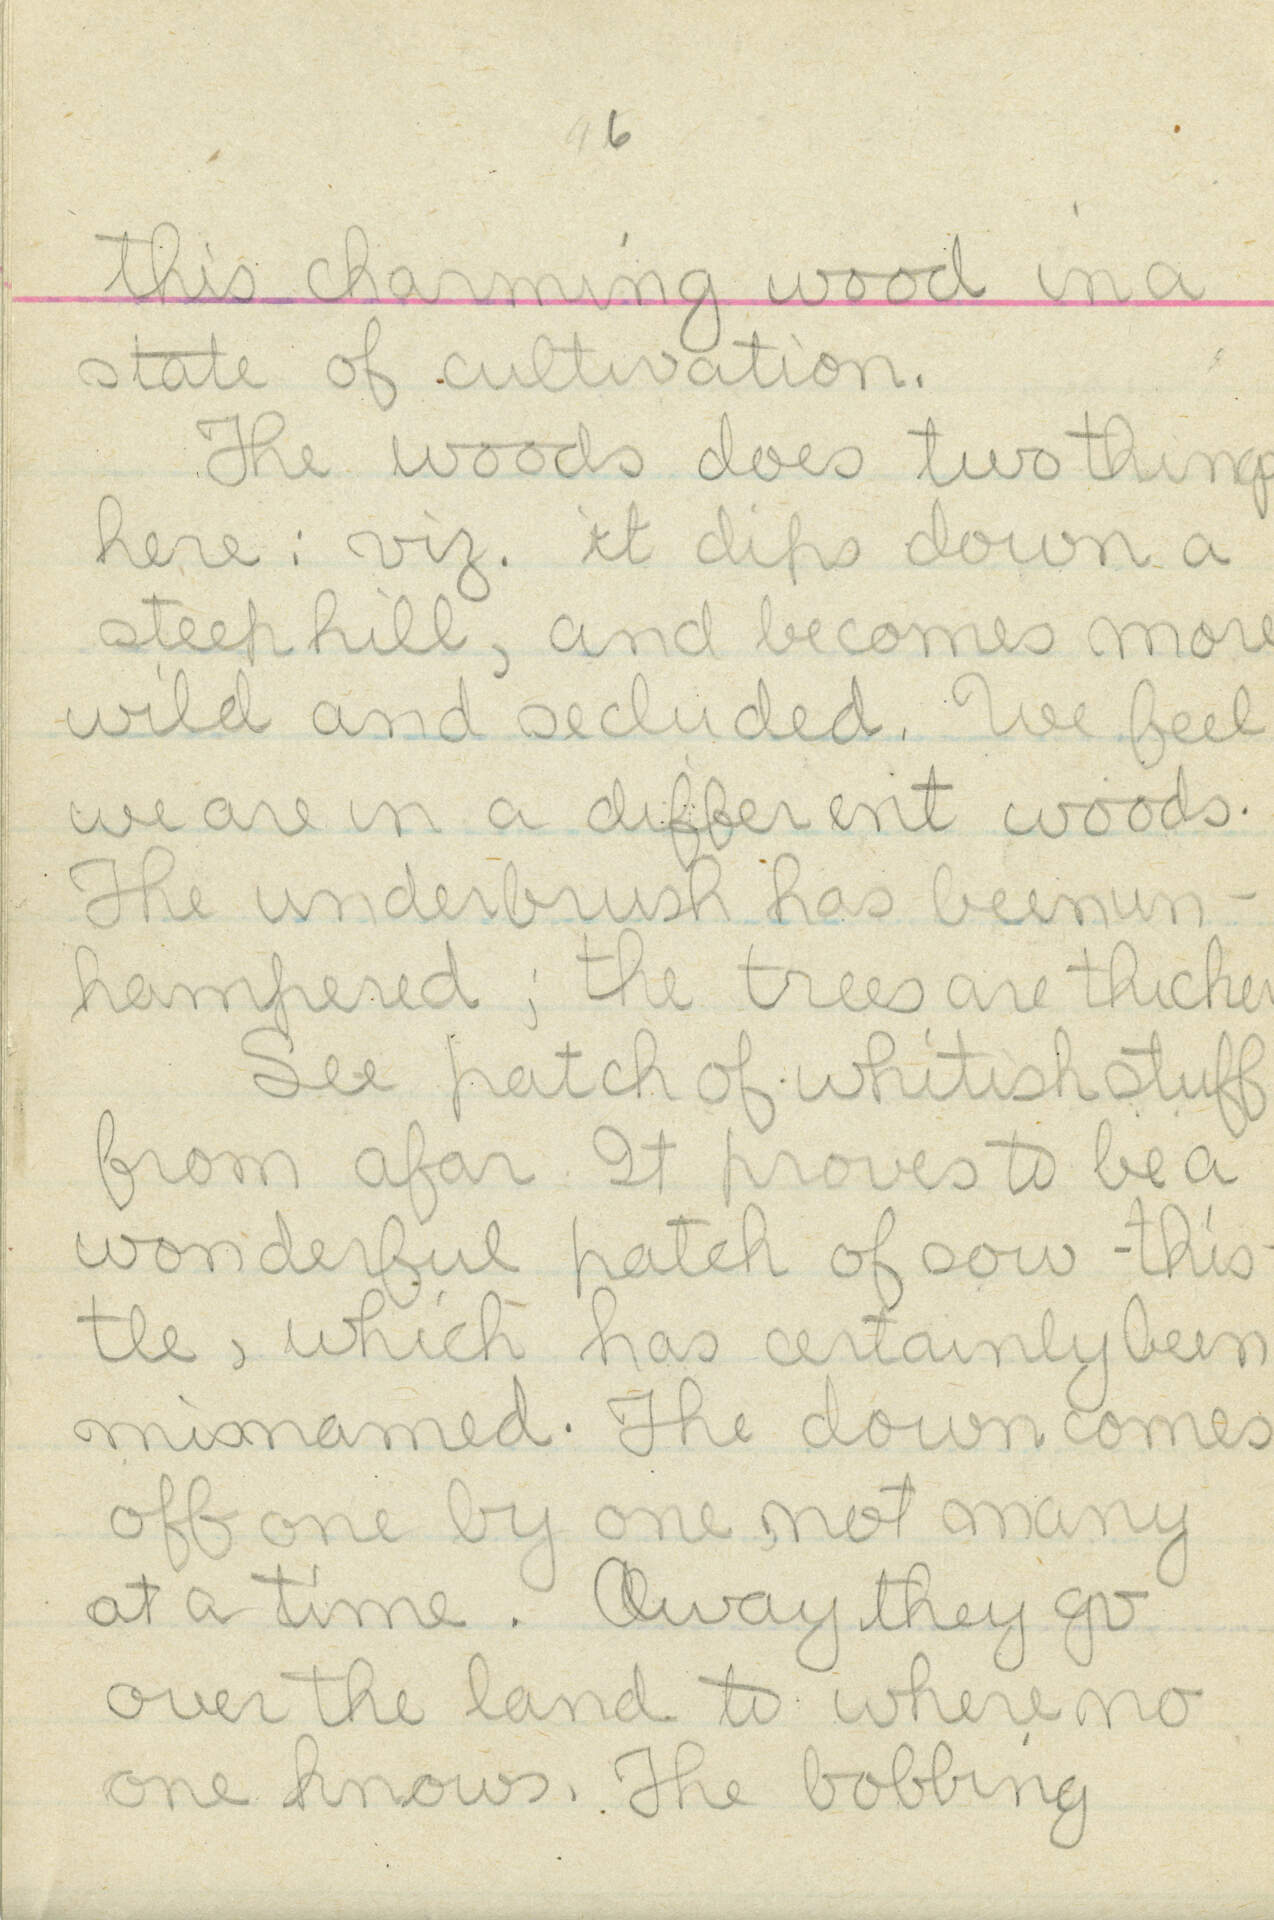 96
this charming wood in a
state of cultivation.
The woods does two things
here: viz. it dips down a
steep hill, and becomes more
wild and secluded. We feel
we are in a different woods.
The underbrush has been un-
hampered; the trees are thicker
See patch of whitish stuff
from afar. It proves to be a
wonderful patch of sow-this-
tle, which has certainly been
misnamed. The down comes
off one by one, not many
at a time. Away they go
over the land to where no
one knows. The bobbing